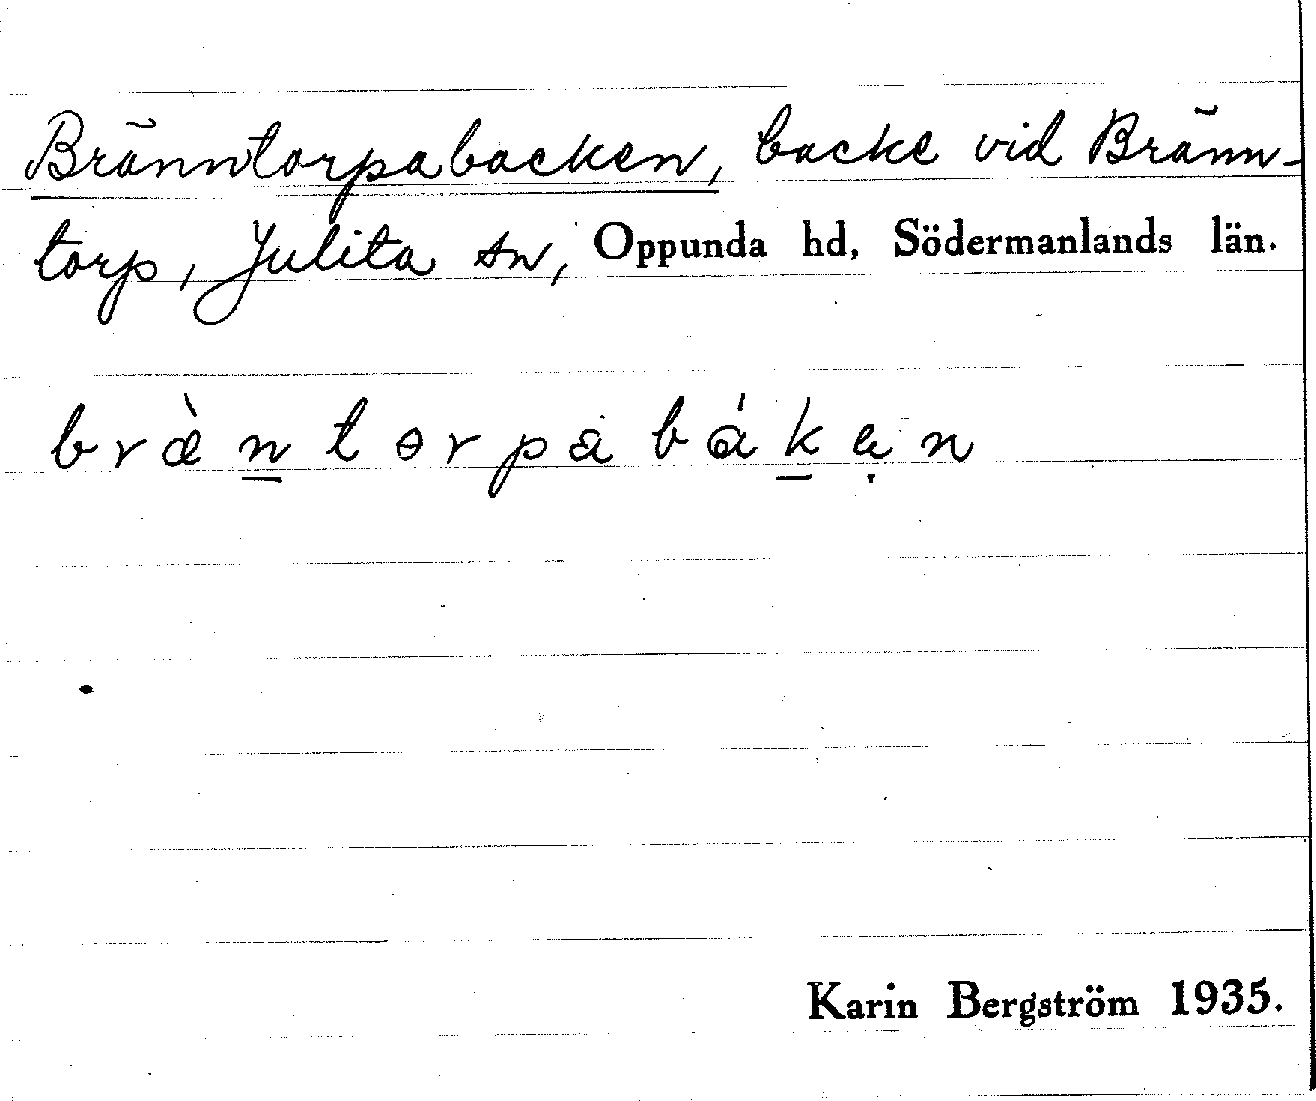 Bränntorpabacken, backe vid Bränn-
torp, Julita sn, Oppunda hd, Södermanlands län.
bræ̀n̲tɵrpa bák̲ạn
Karin Bergström 1935.